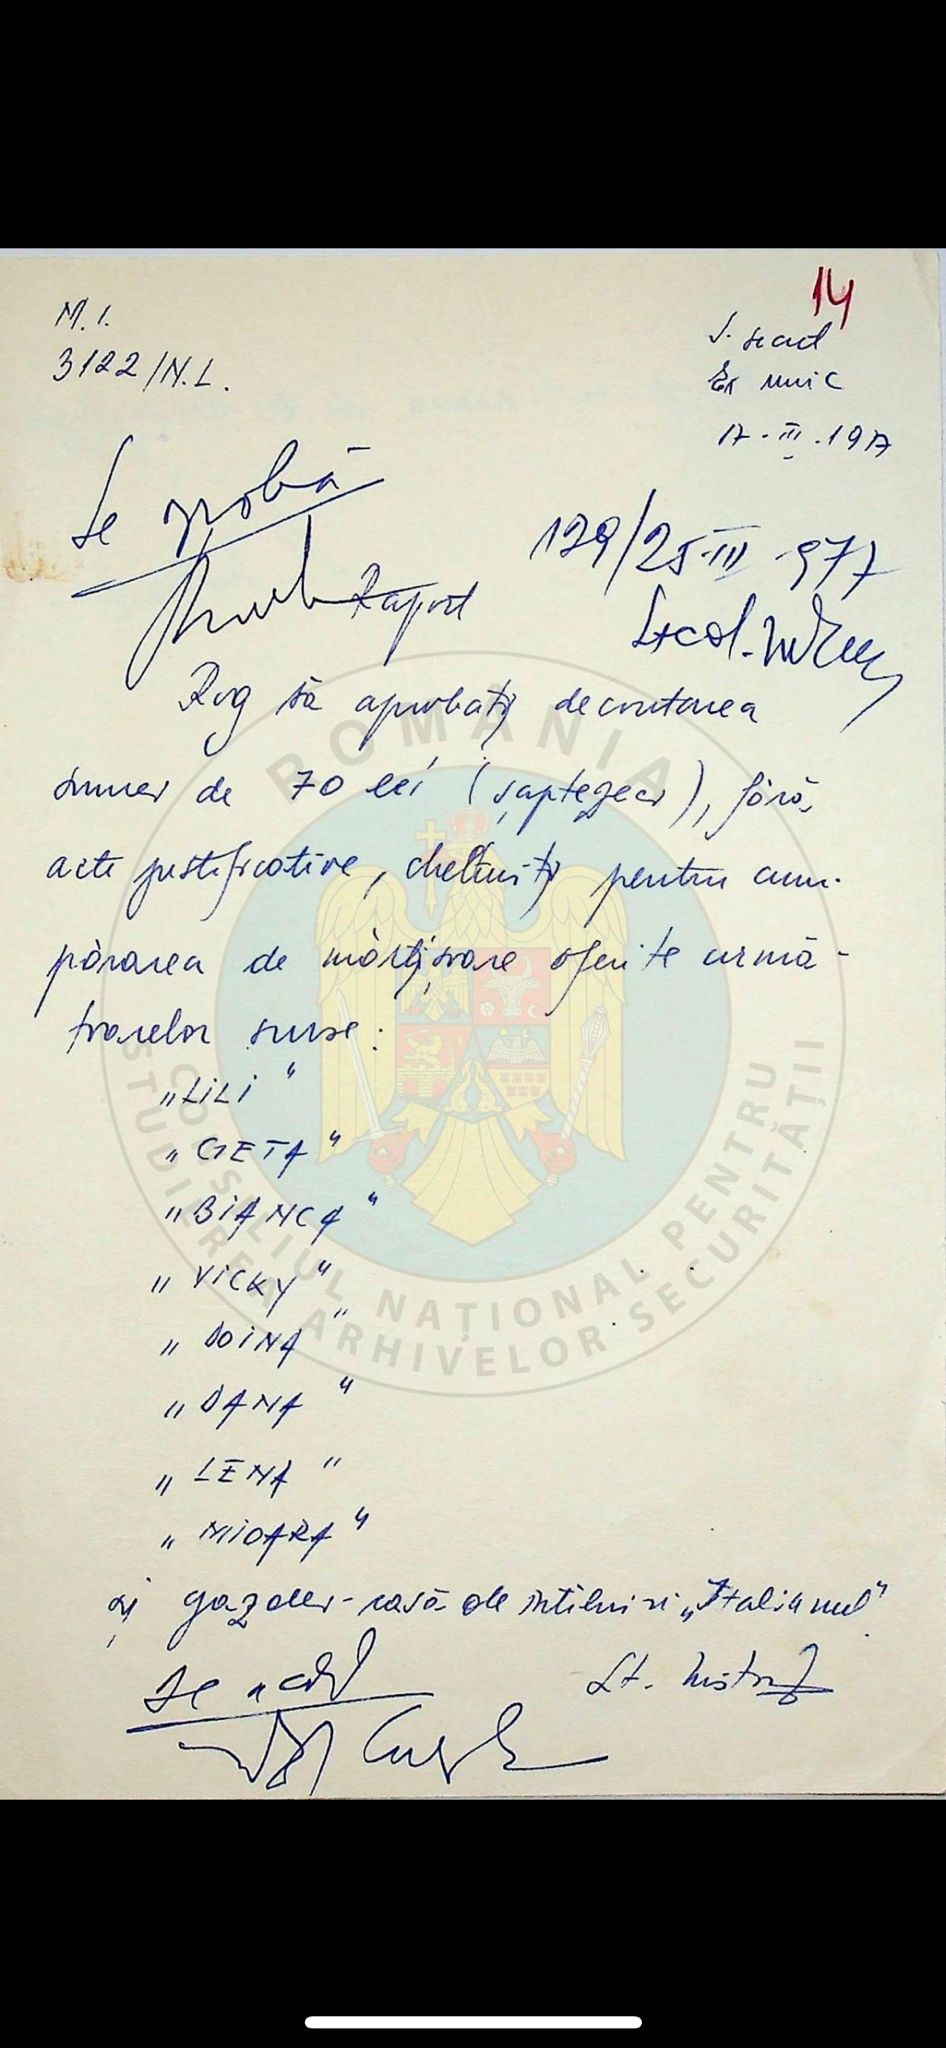 14
M. I.
3122/N.L.
S. secret
Ex unic
17.III.1977
Se aprobă
129/25.III.977
Lt.col.
Raport
Rog să aprobați decontarea
sumei de 70 lei (șaptezeci), fără
acte justificative, cheltuiți pentru cum-
părarea de mărțișoare oferite urmă-
toarelor surse:
„LILI"
„GETA"
„BIANCA"
„VICKY"
„DOINA"
„DANA"
„LENA"
„MIOARA"
și gazdei-casă de întîlniri „Italianul"
Lt.
ROMÂNIA
CONSILIUL NAȚIONAL PENTRU
STUDIEREA ARHIVELOR SECURITĂȚII